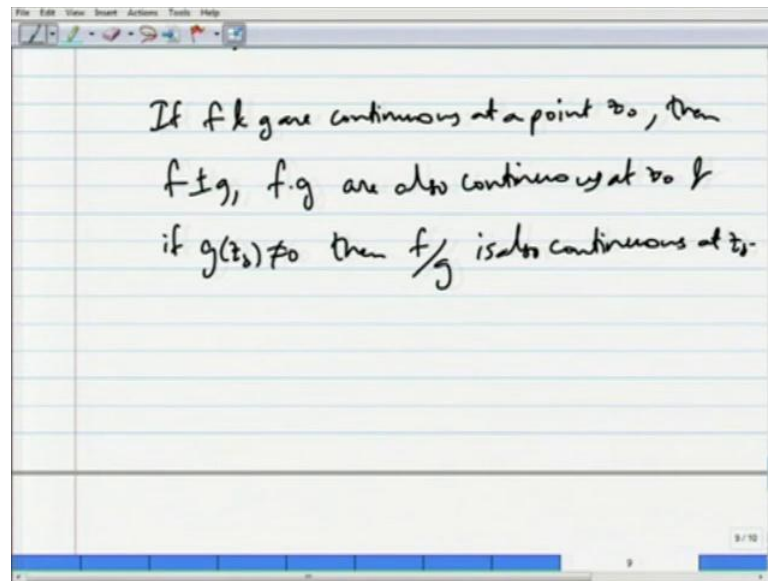 File Edit View Insert Actions Tools Help
If f & g are continuous at a point z₀, then
f ± g, f·g are also continuous at z₀ &
if g(z₀) ≠ 0 then f/g is also continuous at z₀.
9 / 10
9